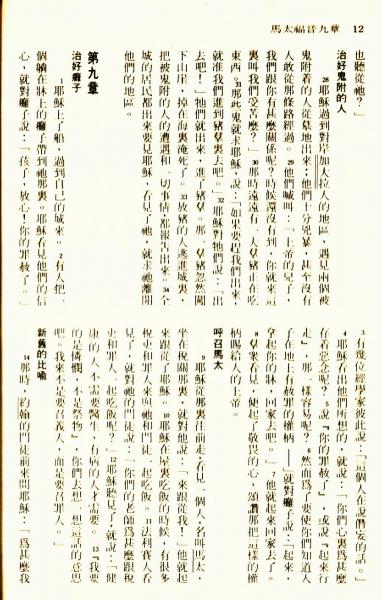 馬太福音九章　12
也聽從祂?」
治好鬼附的人
28耶穌過到對岸加大拉人的地區,遇見兩個被
鬼附着的人從墓地出來;他們十分兇暴,甚至沒有
人敢從那條路經過。29他們喊叫:「上帝的兒子,
我們跟你有甚麼關係呢?時候還沒有到,你就來這
裏叫我們受苦麼?」30那時遠遠有一大羣豬正在吃
東西。31那些鬼就求耶穌,說:「如果要趕我們出來,
就准我們進到豬羣裏去吧。」32耶穌對牠們說:「出
去吧!」牠們就出來,進了豬羣。那一羣豬忽然闖
下山崖,掉在海裏淹死了。33放豬的人逃進城裏,
把被鬼附的人的遭遇和一切事情都報告出來。34全
城的居民都出來要見耶穌,看見了祂,就求祂離開
他們的地區。
第九章
治好癱子
1耶穌上了船,過到自己的城來。2有人把一
個躺在牀上的癱子帶到祂那裏。耶穌看見他們的信
心,就對癱子說:「孩子,放心!你的罪赦了。」
3有幾位經學家彼此說:「這個人在說僭妄的話。」
4耶穌看出他們所想的,就說:「你們心裏爲甚麼
存着惡念呢?5說『你的罪赦了』,或說『起來行
走』,那一樣容易呢?6然而爲了要使你們知道人
子在地上有赦罪的權柄——」就對癱子說:「起來,
拿起你的牀,回家去吧。」7他就起來回家去了。
8羣衆看見,便起了敬畏的心,頌讚那把這樣的權
柄賜給人的上帝。
呼召馬太
9耶穌從那裏往前走,看見一個人,名叫馬太,
坐在稅關那裏,就對他說:「來跟從我!」他就起
來跟從了耶穌。10耶穌在屋裏吃飯的時候,有很多
稅吏和罪人來與祂和門徒一起吃飯。11法利賽人看
見了,就對祂的門徒說:「你們的老師爲甚麼跟稅
吏和罪人一起吃飯呢?」12耶穌聽見了,就說:「健
康的人不需要醫生,有病的人才需要。13『我要
的是憐憫,不是祭物』,你們去想一想這話的意思
吧。我來不是要召義人,而是要召罪人。」
新舊的比喻
14那時,約翰的門徒前來問耶穌:「爲甚麼我